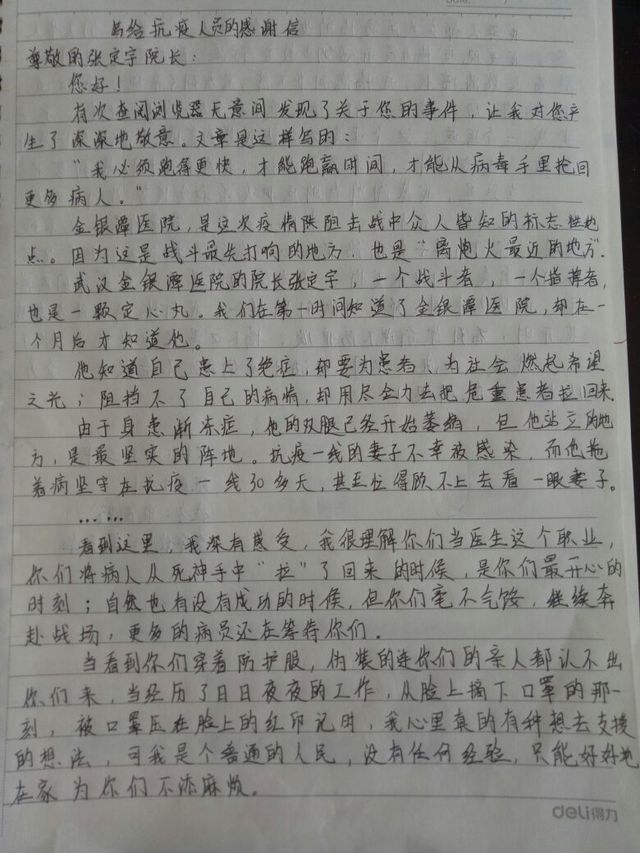 写给抗疫人员的感谢信
尊敬的张定宇院长：
您好！
有次查阅浏览器无意间发现了关于您的事件，让我对您产
生了深深地敬意。文章是这样写的：
“我必须跑得更快，才能跑赢时间，才能从病毒手里抢回
更多病人。”
金银潭医院，是这次疫情阻击战中众人皆知的标志性地
点。因为这是战斗最先打响的地方，也是“离炮火最近的地方”。
武汉金银潭医院的院长张定宇，一个战斗者，一个指挥者，
也是一颗定心丸。我们在第一时间知道了金银潭医院，却在一
个月后才知道他。
他知道自己患上了绝症，却要为患者、为社会燃起希望
之光；阻挡不了自己的病情，却用尽全力去把危重患者拉回来。
由于身患渐冻症，他的双腿已经开始萎缩，但他站立的地
方，是最坚实的阵地。抗疫一线的妻子不幸被感染，而他拖
着病坚守在抗疫一线30多天，甚至忙得顾不上去看一眼妻子。
……
看到这里，我深有感受，我很理解你们当医生这个职业，
你们将病人从死神手中“拉”了回来的时候，是你们最开心的
时刻；自然也有没有成功的时候，但你们毫不气馁，继续奔
赴战场，更多的病员还在等待你们。
当看到你们穿着防护服，伪装的连你们的亲人都认不出
你们来，当经历了日日夜夜的工作，从脸上摘下口罩的那一
刻，被口罩压在脸上的红印记时，我心里真的有种想去支援
的想法，可我是个普通的人民，没有任何经验，只能好好地
在家为你们不添麻烦。
deli得力